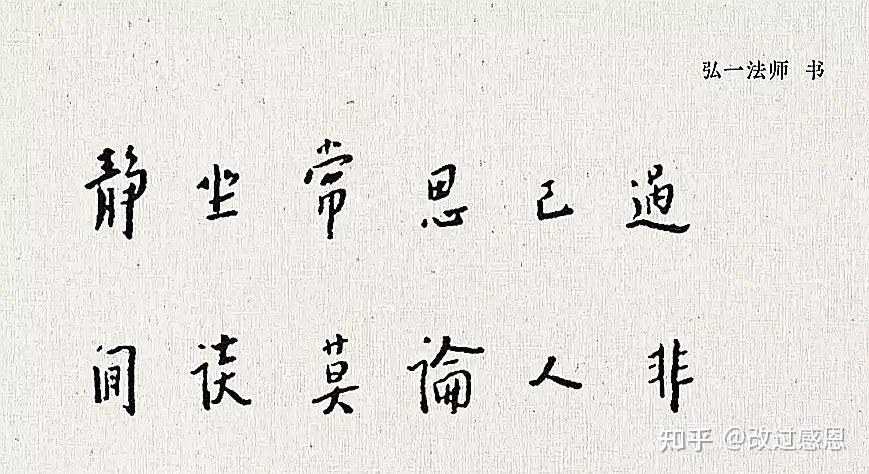 弘一法师 书
静坐常思己過
间谈莫論人非
知乎 @改过感恩